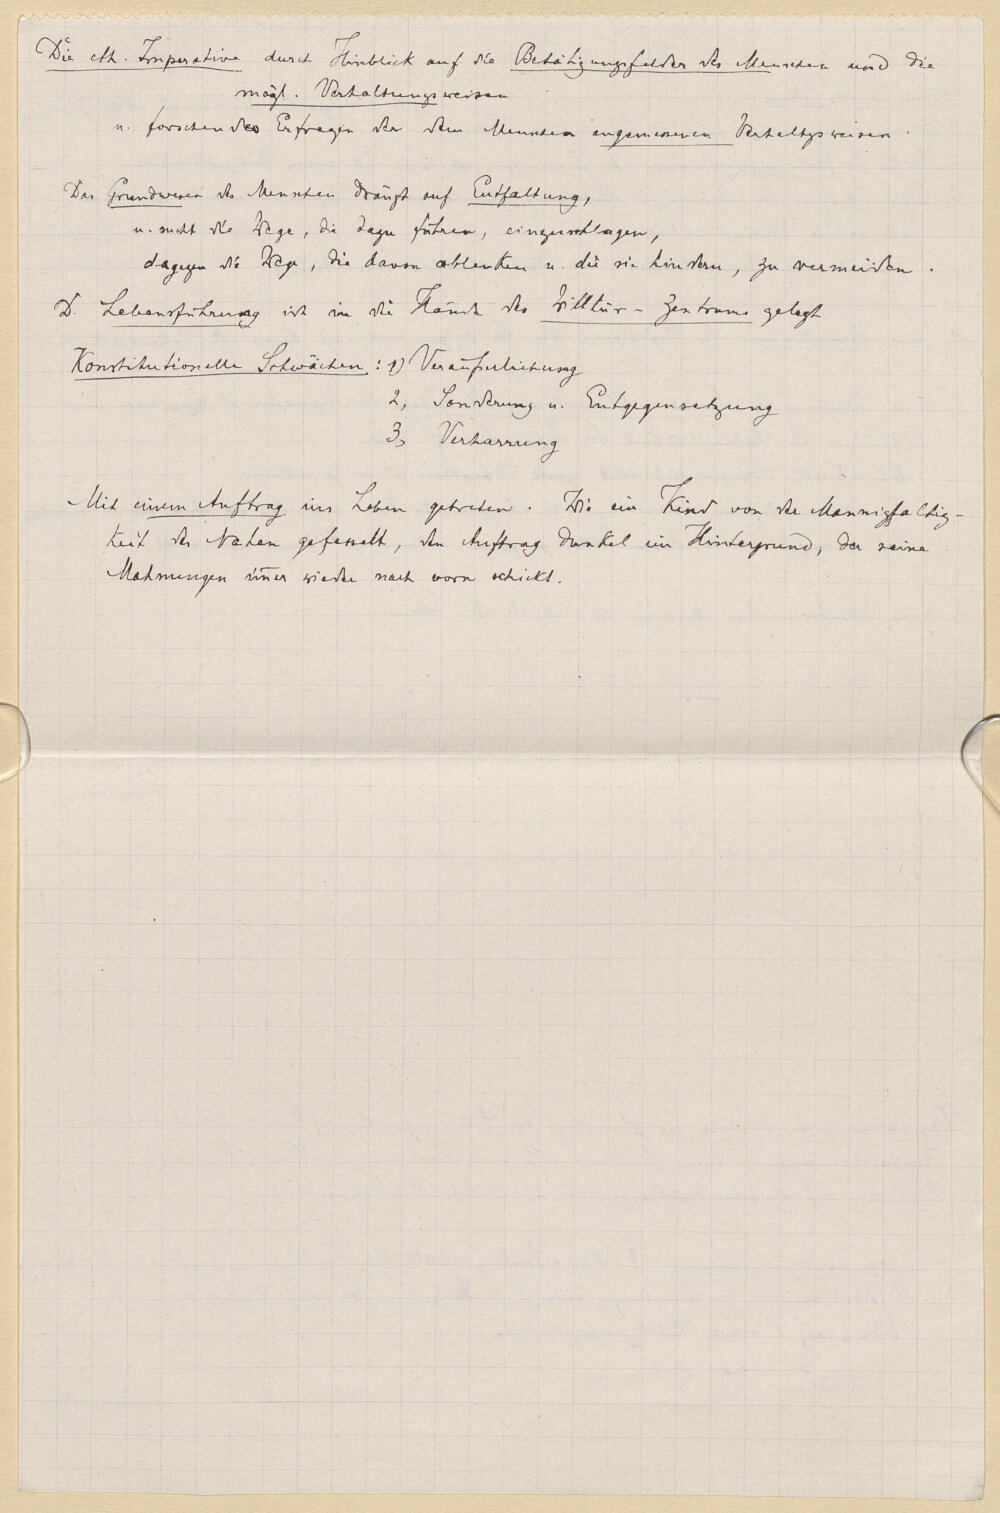 Die eth. Imperative durch Hinblick auf die Betätigungsfelder des Menschen und die
mögl. Verhaltungsweisen
u. forschendes Erfragen der dem Menschen angemessenen Verhaltgsweisen.
Das Grundwesen des Menschen drängt auf Entfaltung,
u. sucht die Wege, die dazu führen, einzuschlagen,
dagegen die Wege, die davon ablenken u. die sie hindern, zu vermeiden.
D. Lebensführung ist in die Hände des Willkür-Zentrums gelegt
Konstitutionelle Schwächen: 1) Veräußerlichung
2, Sonderung u. Entgegensetzung
3, Verharrung
Mit einem Auftrag ins Leben getreten. Wie ein Kind von der Mannigfaltig-
keit des Nahen gefesselt, den Auftrag dunkel im Hintergrund, der seine
Mahnungen im̄er wieder nach vorn schickt.